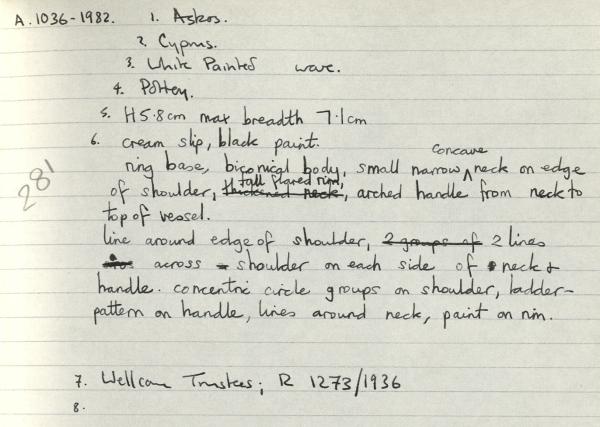 A.1036-1982. 1. Askos.
2. Cyprus.
3. White Painted ware.
4. Pottery.
5. H5.8cm max breadth 7.1cm
6. cream slip, black paint.
ring base, biconical body, small narrow concave neck on edge
of shoulder, thickened neck, tall flared rim, arched handle from neck to
top of vessel.
line around edge of shoulder, 2 groups of 2 lines
across shoulder on each side of neck &
handle. concentric circle groups on shoulder, ladder-
pattern on handle, lines around neck, paint on rim.
281
7. Wellcome Trustees; R 1273/1936
8.